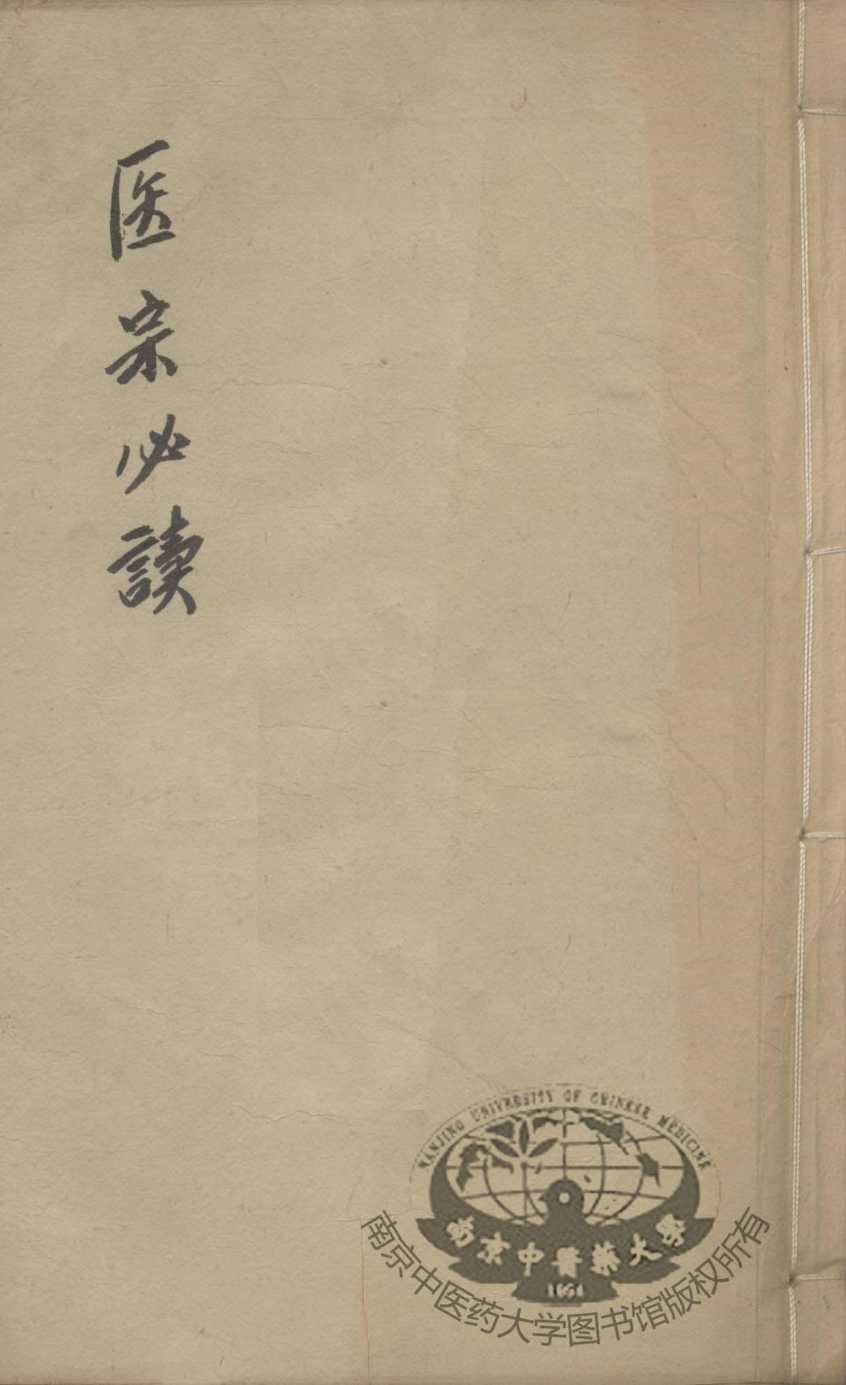 医宗必讀
NANJING UNIVERSITY OF CHINESE MEDICINE
南京中醫藥大學
1954
南京中医药大学图书馆版权所有